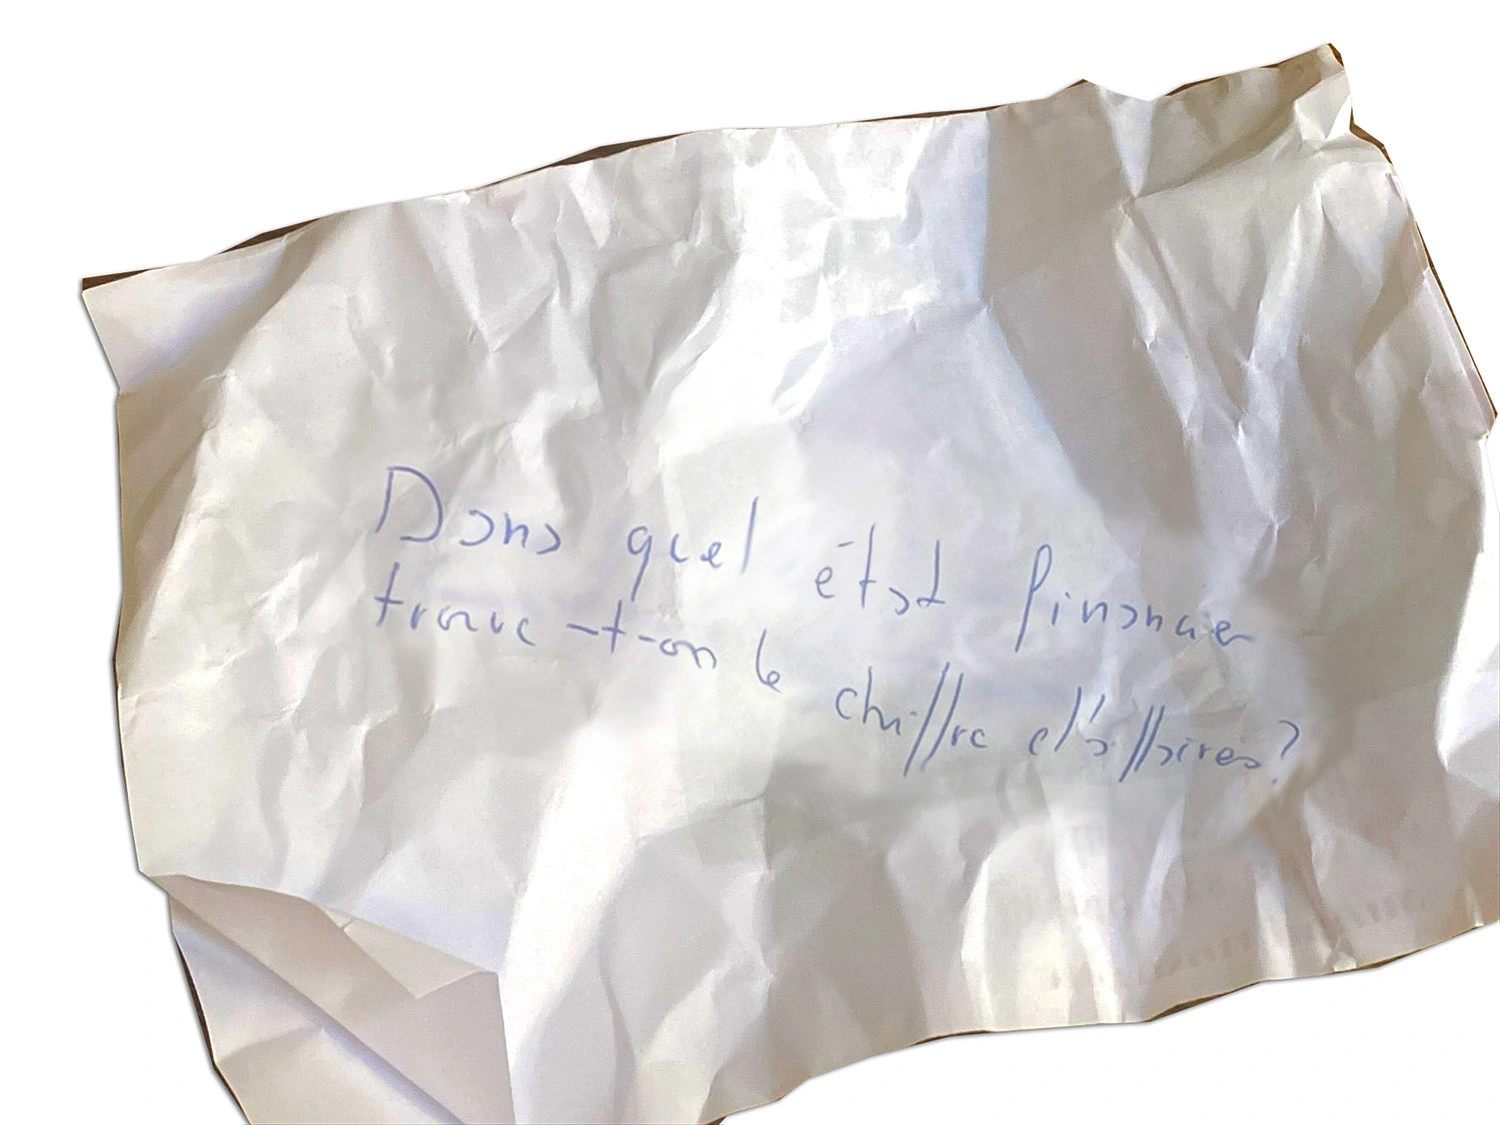 Dans quel état financier
trouve-t-on le chiffre d'affaires?